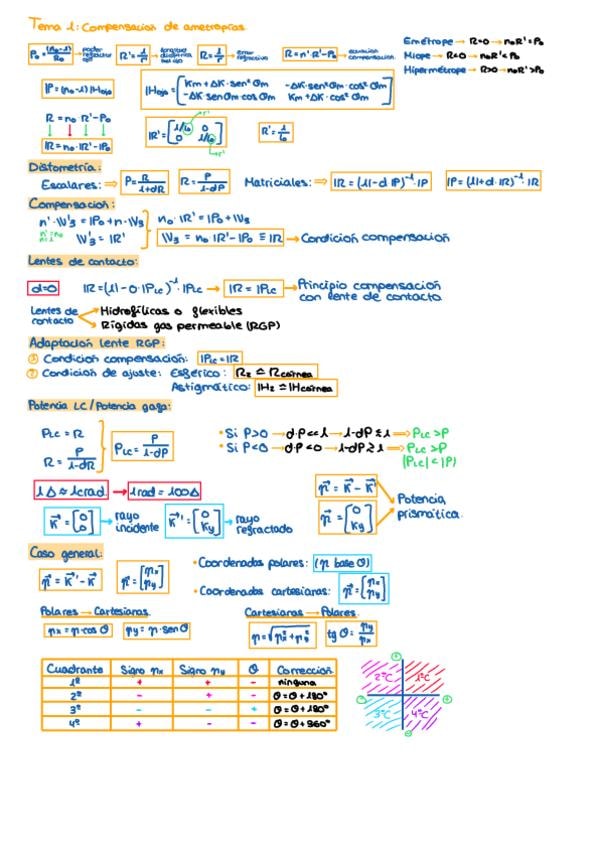 Tema 1: Compensacion de ametropías
P₀ = (n₀-1)/R₀ → poder refractor ojo
R' = 1/r' → longitud dióptrica del ojo
R = 1/r → error refractivo
R = n'·R'-P₀ → ecuación compensación
Emétrope → R=0 → n₀R'=P₀
Miope → R<0 → n₀R'<P₀
Hipermétrope → R>0 → n₀R'>P₀
IP = (n₀-1)IHojo
IHojo = [Km+ΔK·sen²θm -ΔK·senθm·cosθm
-ΔK senθm cosθm Km+ΔK·cos²θm]
R = n₀ R'-P₀
IR = n₀·IR'-IP₀
IR' = [1/l₀ 0
0 1/l₀]
R' = 1/l₀
Distometría:
Escalares: ⇒ P = R/(1+dR) R = P/(1-dP) Matriciales: ⇒ IR = (1I-d IP)⁻¹·IP IP = (1I+d·IR)⁻¹·IR
Compensacion:
n'·IV'₃ = IP₀+n·IV₃
n'=n₀
IV'₃ = IR'
n₀·IR' = IP₀+IV₃
IV₃ = n₀·IR'-IP₀ ≡ IR → Condición compensación
Lentes de contacto:
d=0 IR = (1I-0·IPLC)⁻¹·IPLC → IR = IPLC → Principio compensación
con lente de contacto.
Lentes de contacto
Hidrofílicas o flexibles
Rígidas gas permeable (RGP)
Adaptación lente RGP:
① Condición compensación: IPLC = IR
② Condición de ajuste: Esférico: R₂ ≃ Rcórnea
Astigmático: IH₂ ≃ IHcórnea
Potencia LC/Potencia gafa:
PLC = R
R = P/(1-dR)
PLC = P/(1-dP)
• Si P>0 → d·P<<1 → 1-dP ≤ 1 ⇒ PLC > P
• Si P<0 → d·P<0 → 1-dP ≥ 1 ⇒ PLC > P
(|PLC|<|P|)
1Δ ≈ 1crad → 1rad = 100Δ
K = [0 0] → rayo incidente
K' = [0 Ky] → rayo refractado
p = K' - K
p = [0 Ky]
Potencia prismática.
Caso general:
p = K' - K
p = [px py]
• Coordenadas polares: (p base θ)
• Coordenadas cartesianas: p = [px py]
Polares → Cartesianas
px = p·cosθ py = p·senθ
Cartesianas → Polares.
p = √(p²x+p²y) tgθ = py/px
Cuadrante Signo px Signo py θ Corrección
1º + + - ninguna
2º - + - θ=θ+180º
3º - - + θ=θ+180º
4º + - - θ=θ+360º
2ºC 1ºC
3ºC 4ºC